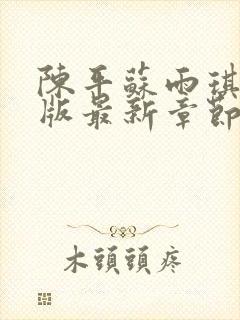 陳平蘇雨琪
版最新章節
木頭頭疼